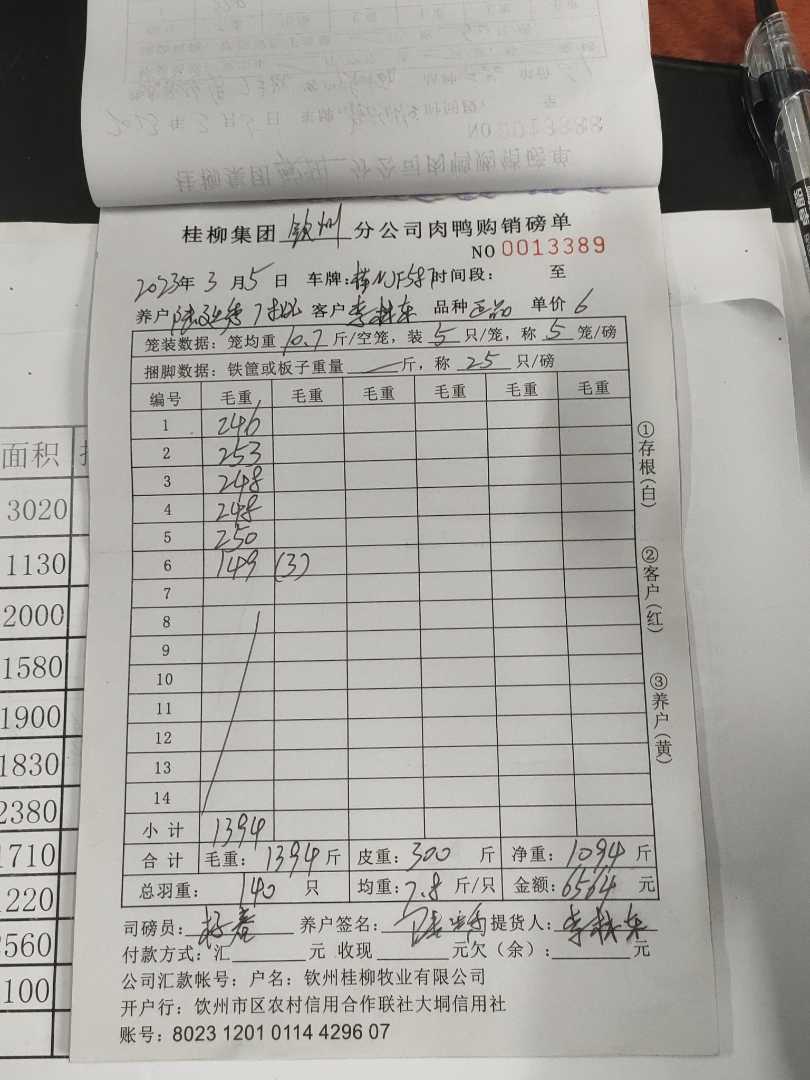 桂柳集团 钦州 分公司肉鸭购销磅单
NO 0013389
2023年 3 月 5 日 车牌: 时间段: 至
养户 客户 李 东 品种 正品 单价 6
笼装数据: 笼均重 10.7 斤/空笼, 装 5 只/笼, 称 5 笼/磅
捆脚数据: 铁筐或板子重量 斤, 称 25 只/磅
编号 毛重 毛重 毛重 毛重 毛重 毛重
1 246
2 253
3 248
4 248
5 250
6 149 (3)
7
8
9
10
11
12
13
14
小计 1394
合计 毛重: 1394 斤 皮重: 300 斤 净重: 1094 斤
总羽重: 140 只 均重: 7.8 斤/只 金额: 6564 元
司磅员: 养户签名: 提货人: 李 东
付款方式: 汇 元 收现 元欠(余): 元
公司汇款帐号: 户名: 钦州桂柳牧业有限公司
开户行: 钦州市区农村信用合作联社大垌信用社
账号: 8023 1201 0114 4296 07
①存根(白)
②客户(红)
③养户(黄)
面积
3020
1130
2000
1580
1900
1830
2380
1710
1220
3560
100